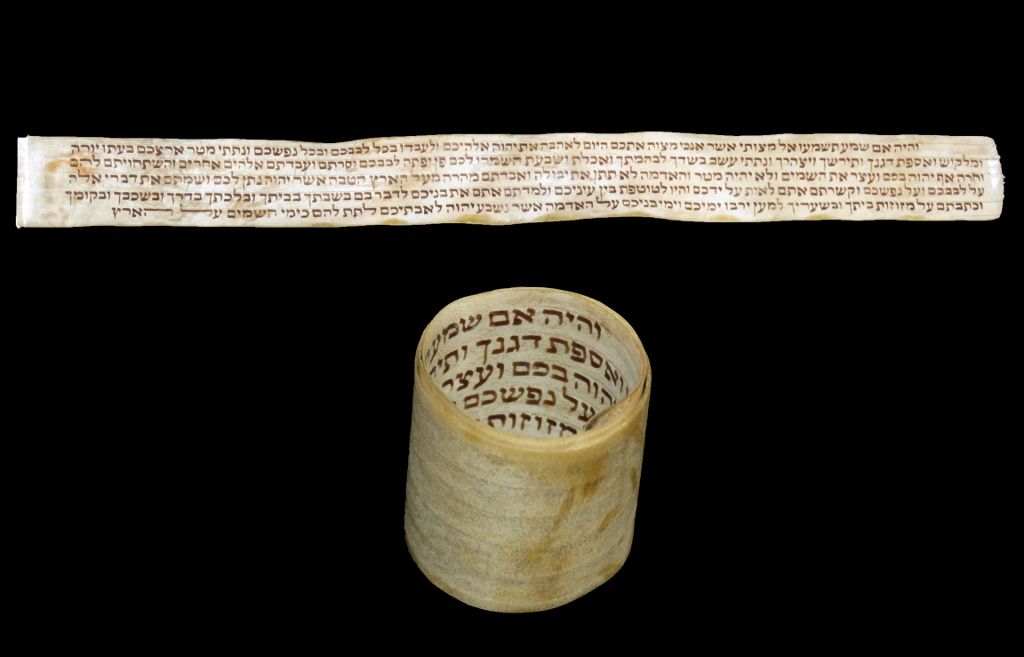 והיה אם שמע תשמעו אל מצותי אשר אנכי מצוה אתכם היום לאהבה את יהוה אלהיכם ולעבדו בכל לבבכם ובכל נפשכם ונתתי מטר ארצכם בעתו יורה
ומלקוש ואספת דגנך ותירשך ויצהרך ונתתי עשב בשדך לבהמתך ואכלת ושבעת השמרו לכם פן יפתה לבבכם וסרתם ועבדתם אלהים אחרים והשתחויתם להם
וחרה אף יהוה בכם ועצר את השמים ולא יהיה מטר והאדמה לא תתן את יבולה ואבדתם מהרה מעל הארץ הטבה אשר יהוה נתן לכם ושמתם את דברי אלה
על לבבכם ועל נפשכם וקשרתם אתם לאות על ידכם והיו לטוטפת בין עיניכם ולמדתם אתם את בניכם לדבר בם בשבתך בביתך ובלכתך בדרך ובשכבך ובקומך
וכתבתם על מזוזות ביתך ובשעריך למען ירבו ימיכם וימי בניכם על האדמה אשר נשבע יהוה לאבתיכם לתת להם כימי השמים על הארץ
והיה אם שמע
ואספת דגנך ותיר
יהוה בכם ועצר
על נפשכם
מזוזות